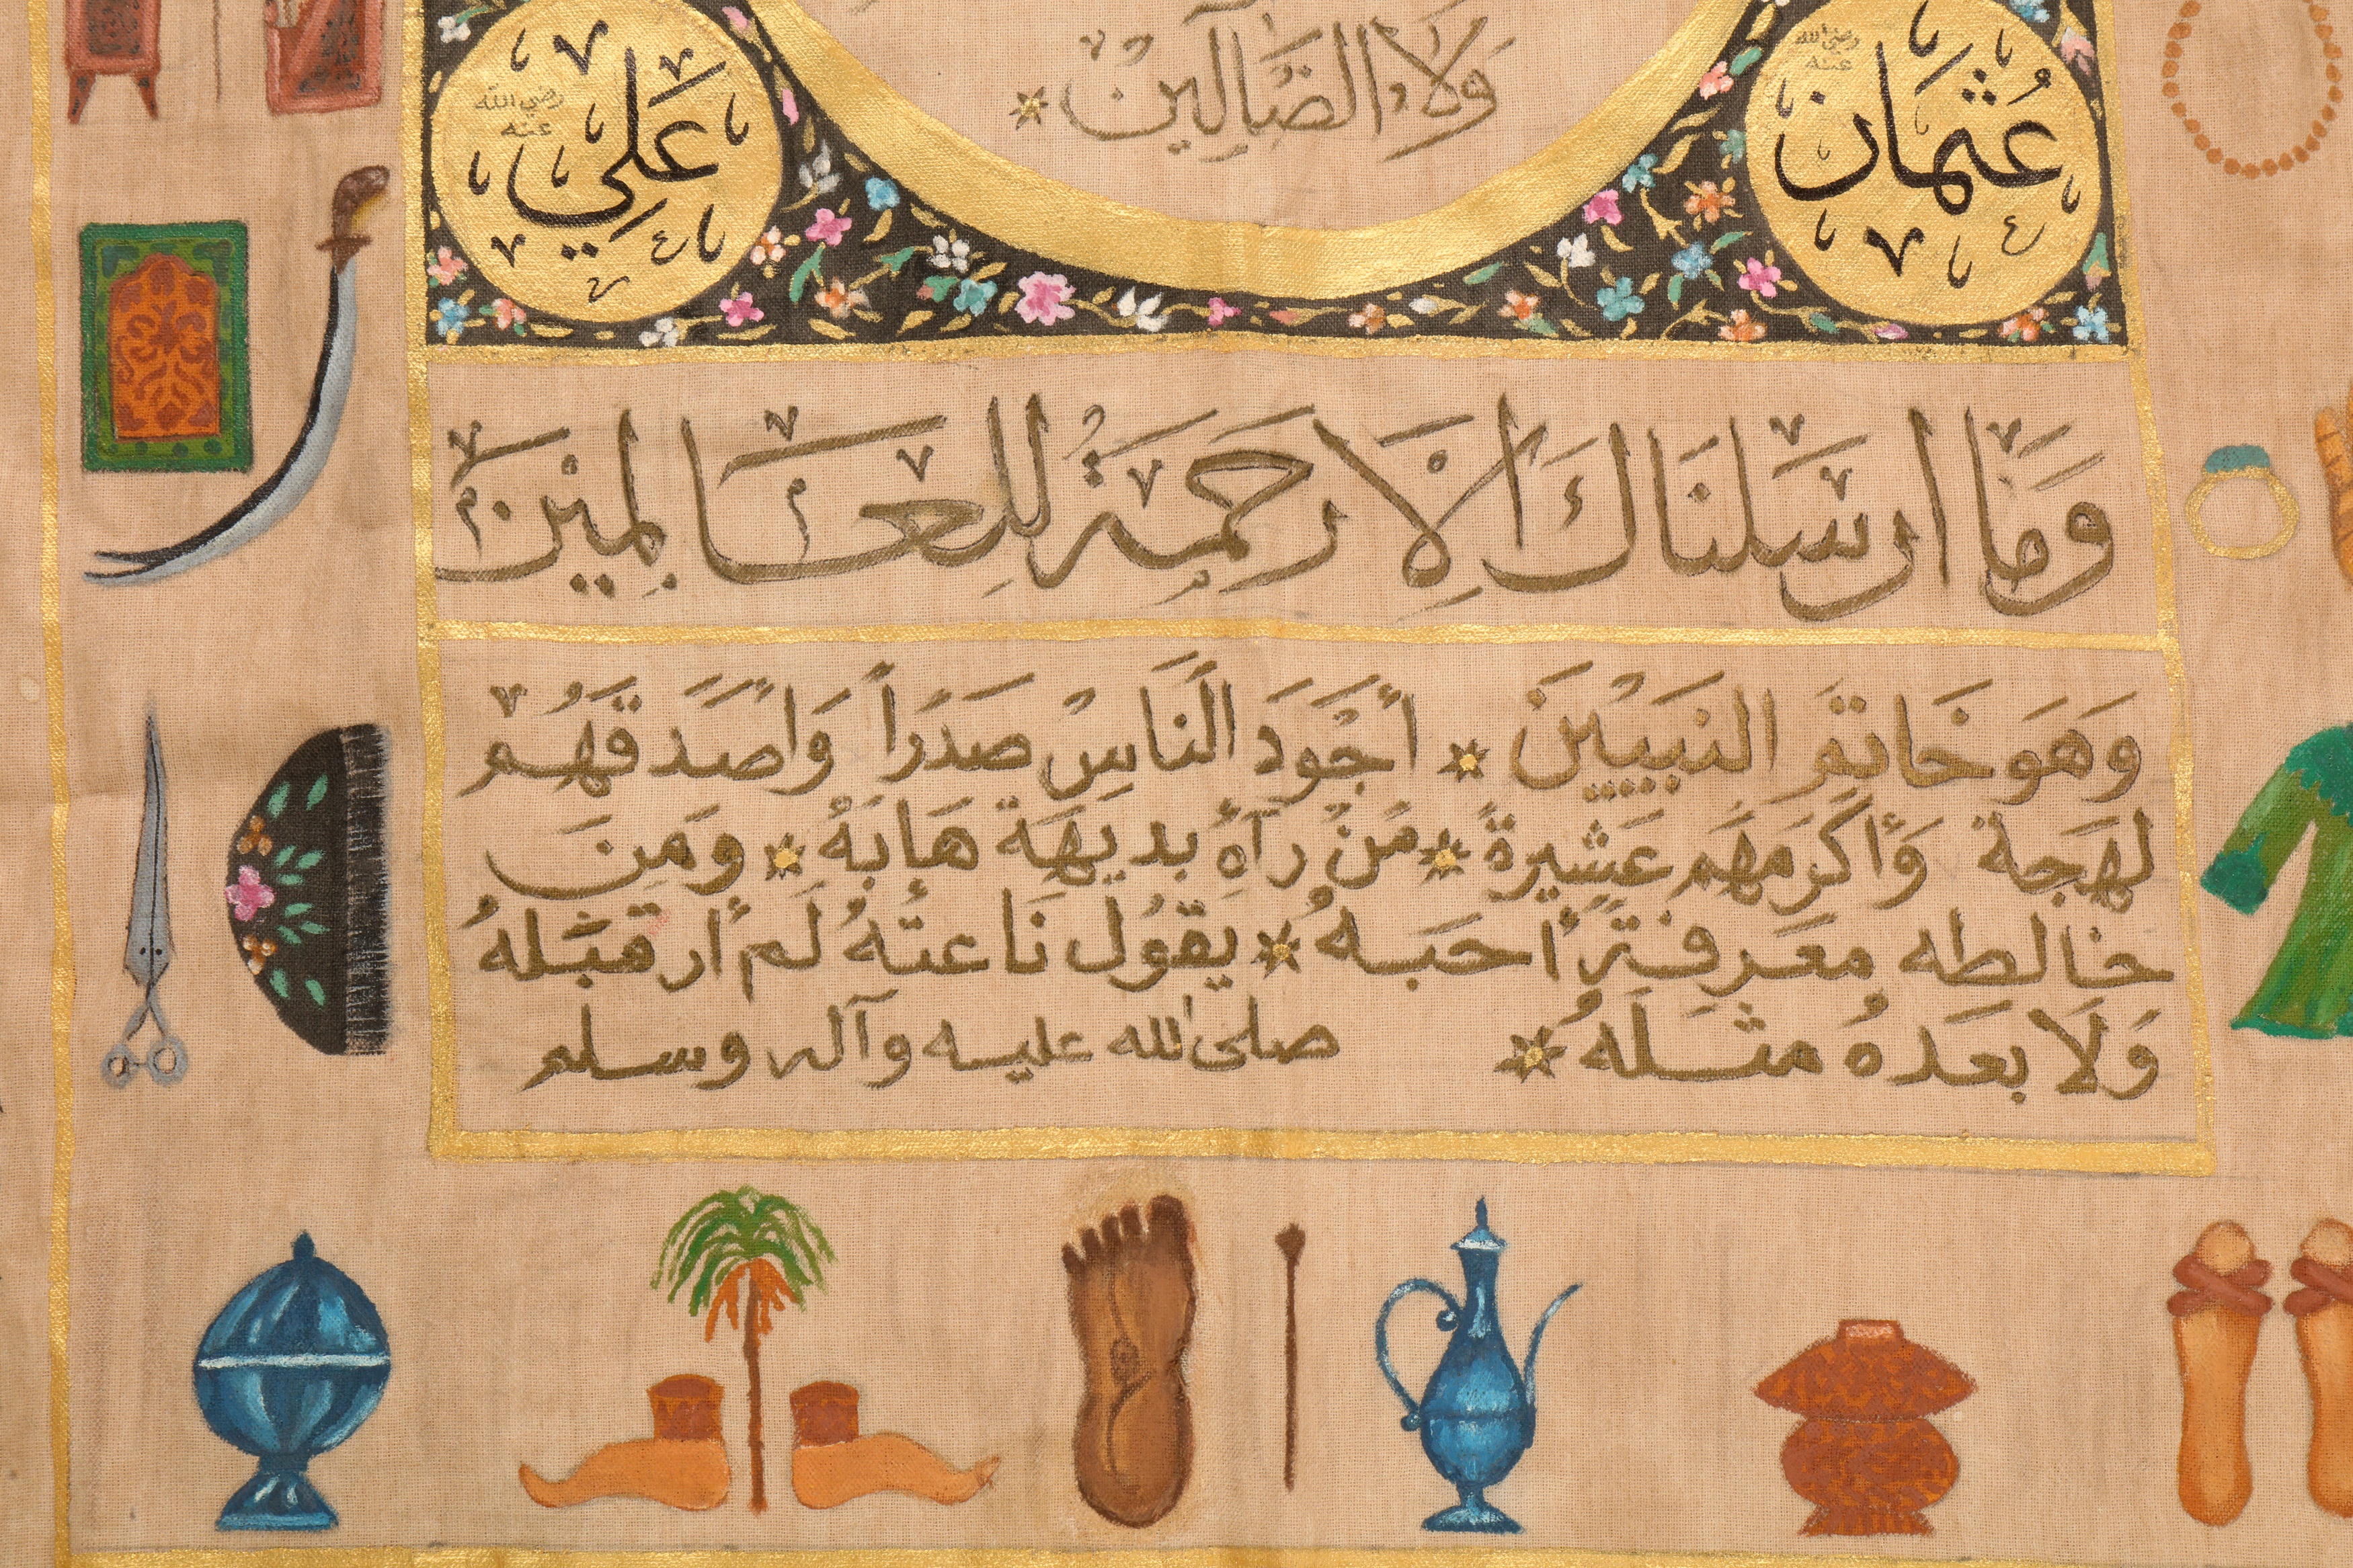 وَلَا الضَّالِّينَ
عُثْمَان
رضي الله
عنه
عَلِي
رضي الله
عنه
وَمَا ارسَلنَاكَ اِلَّا رَحمَةً لِلعَالَمِيْنَ
وَهَوَ خَاتَمَ النَبِيّينَ أجْوَدَ النَاسِ صَدْرَاً وَاَصَدَقَهُم
لهَجَةً وَأكرَمَهَم عَشِيرةً مَنْ رَآهُ بديهَة هَابَهُ ومَنَ
خالطه معَرِفَةً أحَبَهُ يقوُل نَاعتهُ لَم أر قبَلهُ
وَلَا بعَدهُ مثلَهُ صلى الله عليه وآله وسلم